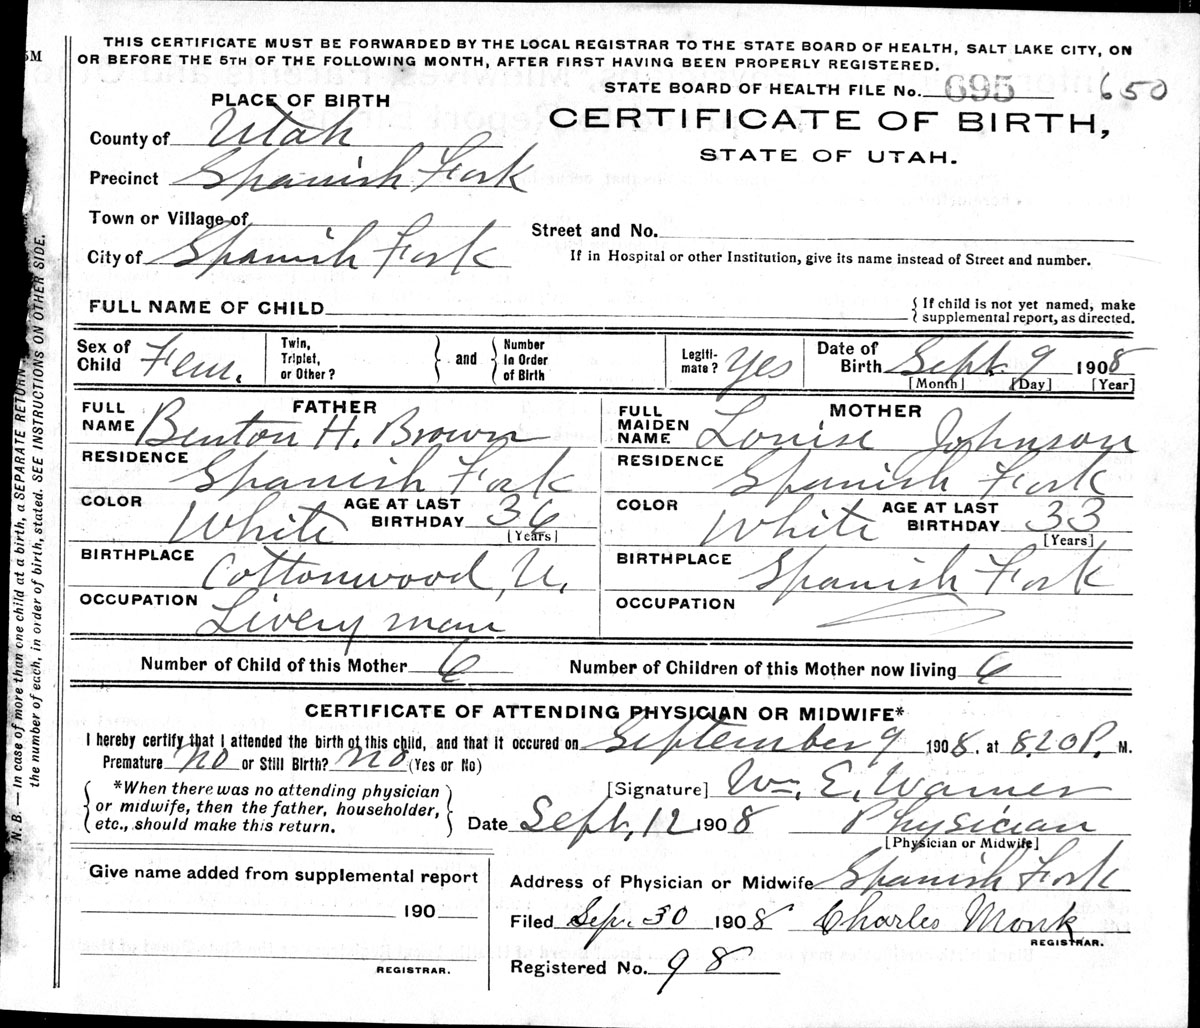 5M
THIS CERTIFICATE MUST BE FORWARDED BY THE LOCAL REGISTRAR TO THE STATE BOARD OF HEALTH, SALT LAKE CITY, ON
OR BEFORE THE 5TH OF THE FOLLOWING MONTH, AFTER FIRST HAVING BEEN PROPERLY REGISTERED.
STATE BOARD OF HEALTH FILE No. 695 650
PLACE OF BIRTH
CERTIFICATE OF BIRTH,
STATE OF UTAH.
County of Utah
Precinct Spanish Fork
Town or Village of
Street and No.
City of Spanish Fork
If in Hospital or other Institution, give its name instead of Street and number.
FULL NAME OF CHILD
{ If child is not yet named, make
supplemental report, as directed.
Sex of Child Fem.
Twin, Triplet, or Other? } and { Number in Order of Birth
Legiti-mate? Yes
Date of Birth Sept. 9 1908
[Month] [Day] [Year]
FATHER
FULL NAME Benton H. Brown
RESIDENCE Spanish Fork
COLOR White AGE AT LAST BIRTHDAY 36
[Years]
BIRTHPLACE Cottonwood, U.
OCCUPATION Livery man
MOTHER
FULL MAIDEN NAME Louise Johnson
RESIDENCE Spanish Fork
COLOR White AGE AT LAST BIRTHDAY 33
[Years]
BIRTHPLACE Spanish Fork
OCCUPATION
Number of Child of this Mother 6 Number of Children of this Mother now living 6
CERTIFICATE OF ATTENDING PHYSICIAN OR MIDWIFE*
I hereby certify that I attended the birth of this child, and that it occured on September 9 1908, at 8.20 P. M.
Premature No or Still Birth? No (Yes or No)
*When there was no attending physician
or midwife, then the father, householder,
etc., should make this return.
[Signature] Wm. E. Warner
Date Sept, 12 1908 Physician
[Physician or Midwife]
Give name added from supplemental report
190
REGISTRAR.
Address of Physician or Midwife Spanish Fork
Filed Sep. 30 1908 Charles Monk
REGISTRAR.
Registered No. 98
N. B. — In case of more than one child at a birth, a SEPARATE RETURN
the number of each, in order of birth, stated. SEE INSTRUCTIONS ON OTHER SIDE.